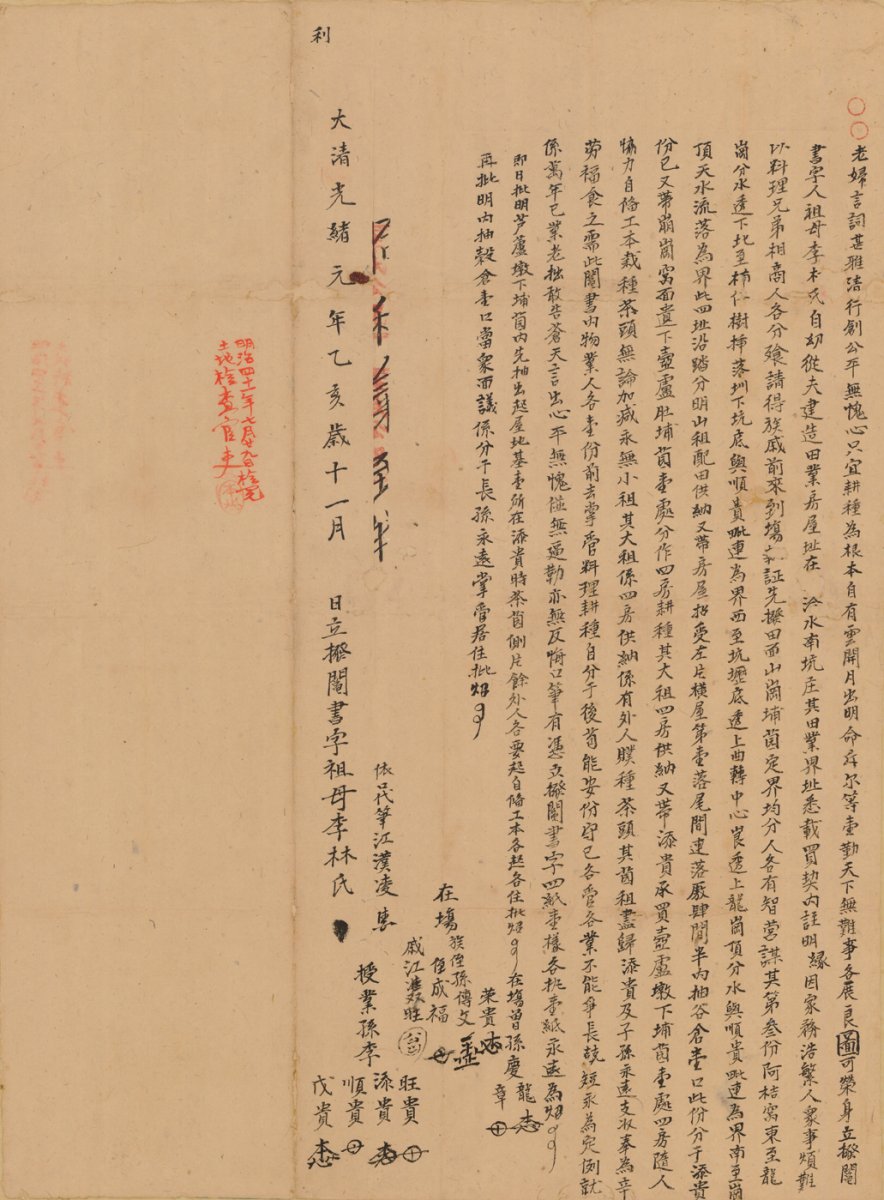 老婦言詞甚雅清行創公平無愧心只宜耕種為根本自有雲開月出明命斥尔等壹勤天下無難事各展良圖可榮身立撥鬮
書字人祖母李林氏自幼從夫建造田業房屋址在 冷水南坑庄其田業界址悉載買契內註明緣因家務浩繁人衆事煩難
以料理兄弟相商人各分飱請得族戚前來到場証先撥田面山崗埔茵定界均分人各有智營謀其第叁份阿桔窩東至龍
崗分水透下北至柿仁樹挿落圳下坑底與順貴毗連為界西至坑壢底透上曲轉中心崀透上龍崗頂分水與順貴毗連為界南至崗
頂天水流落為界此四址沿踏分明山租配田供納又帶房屋拈受左片橫屋第壹落尾間連落厫肆間半內抽谷倉壹口此份分于添貴
份已又帶崩崗窩面遺下壺盧肚埔茵壹處分作四房耕種其大租四房供納又帶添貴承買壺盧墩下埔茵壹處四房隨人
恊力自俻工本栽種茶頭無論加減永無小租其大租係四房供納係有外人䑃種茶頭其茵租盡歸添貴及子孫永遠支收奉為辛
勞福食之需此鬮書內物業人各壹份前去掌管料理耕種自分于後苟能安份守已各管各業不能爭長競短永為定例就
係萬年已業老拙敢告蒼天言出心平無愧僅無逼勒亦無反悔口筆有憑立撥鬮書字四紙壹樣各执壹紙永遠為炤
即日批明芦蘆墩下埔茵內先抽出起屋地基壹所在添貴時茶茵側片餘外人各要起自俻工本各起各住批炤
再批明內抽穀倉壹口當衆面議係分于長孫永遠掌管居住批炤
在塲曾孫慶龍
章
榮貴
在塲族侄孫傳文
侄成福
戚江進旺
依口代筆江漢凌
授業孫李旺貴
添貴
順貴
戊貴
大清光緒元年乙亥歲十一月 日立撥鬮書字祖母李林氏
利
明治四十一年七月廿九日檢完
土地檢查官吏